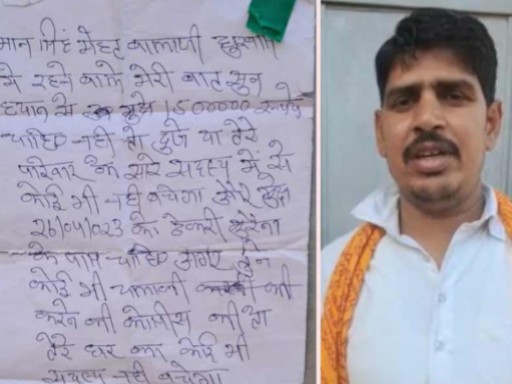 मान सिंह मेहट कालोनी
में रहने वाले मेरी बात सुन
ध्यान से मुझे 1500000 रूपये
चाहिए नही तो तुझे या तेरे
परिवार के सारे सदस्य में से
कोई भी नही बचेगा और
26/04/023 को
के पास चाहिए अगर तुने
कोई भी चालाकी
करने की कोशीस की तो
तेरे घर का कोई भी
सदस्य नही बचेगा